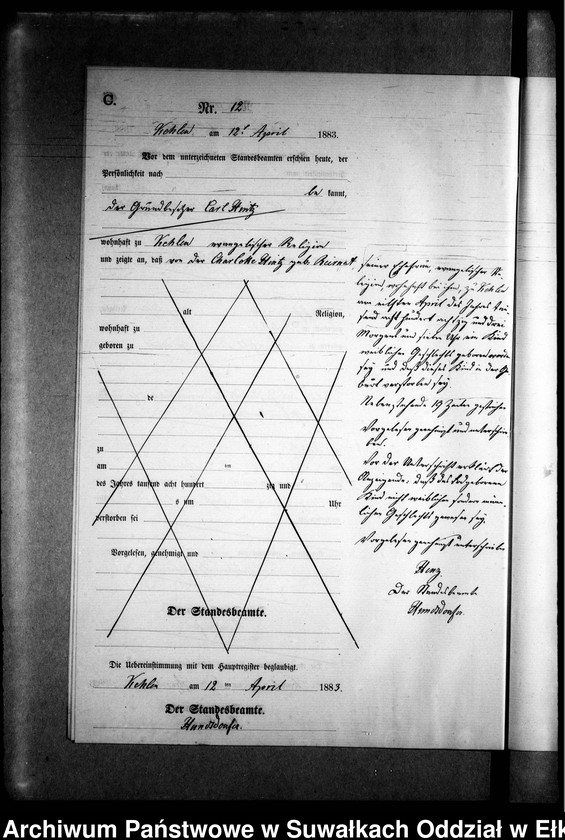 C.
Nr. 12
Kehlen am 12t April 1883.
Vor dem unterzeichneten Standesbeamten erschien heute, der
Persönlichkeit nach
be kannt,
der Grundbesitzer Carl
wohnhaft zu Kehlen evangelischer Religion
und zeigte an, daß von der Charlotte geb.
alt Religion,
wohnhaft zu
geboren zu
de
zu
am ten
des Jahres tausend acht hundert zig und
s um Uhr
verstorben sei
Vorgelesen, genehmigt und
Der Standesbeamte.
seiner Ehefrau, evangelischer Re-
ligion, wohnhaft bei ihm, zu Kehlen
am April des Jahres tau-
send acht hundert achtzig und drei
Morgens um sieben Uhr ein Kind
weiblichen Geschlechts geboren worden
sei und daß dieses Kind in der Ge-
burt verstorben sei.
Nebenstehende 19 Zeilen gestrichen
Vorgelesen genehmigt und unterschrie-
ben.
Vor der Unterschrift erklärt der
Anzeigende, daß das todtgeborene
Kind nicht weiblichen sondern männ-
lichen Geschlechts gewesen sei.
Vorgelesen genehmigt unterschrieben
Der Standesbeamte
Die Uebereinstimmung mit dem Hauptregister beglaubigt.
Kehlen am 12 ten April 1883.
Der Standesbeamte.
Archiwum Państwowe w Suwałkach Oddział w Ełk